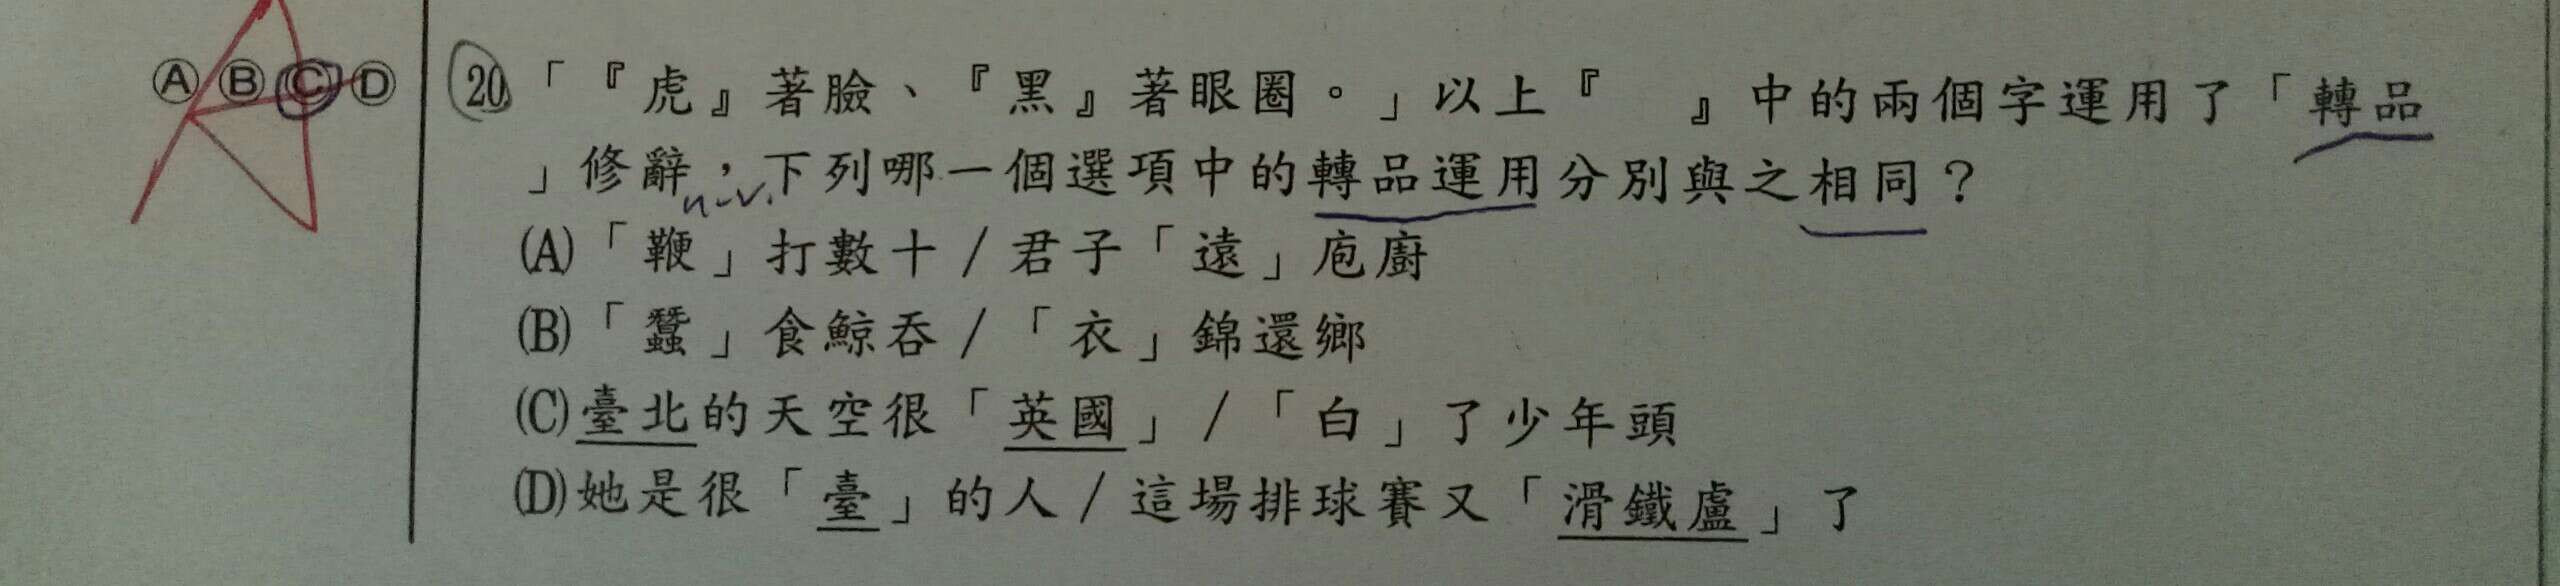 Ⓐ Ⓑ Ⓒ Ⓓ 20.「『虎』著臉、『黑』著眼圈。」以上『　』中的兩個字運用了「轉品
」修辭，下列哪一個選項中的轉品運用分別與之相同？
n-v.
(A)「鞭」打數十/君子「遠」庖廚
(B)「蠶」食鯨吞/「衣」錦還鄉
(C)臺北的天空很「英國」/「白」了少年頭
(D)她是很「臺」的人/這場排球賽又「滑鐵盧」了